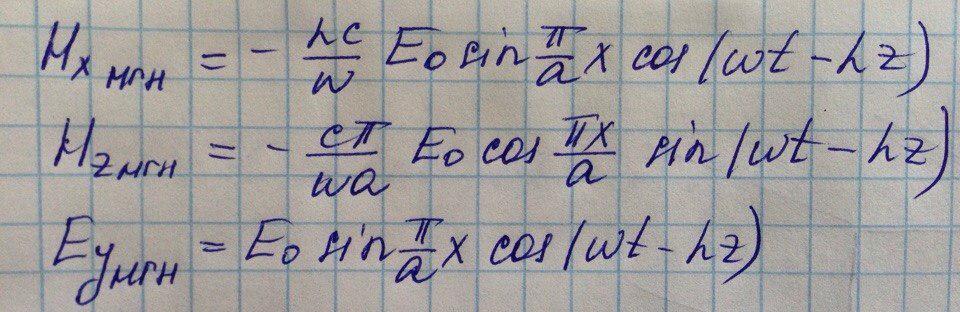 Hx мгн = - hc/w E0 sin π/a x cos(wt - hz)
Hz мгн = - cπ/wa E0 cos πx/a sin(wt - hz)
Ey мгн = E0 sin π/a x cos(wt - hz)